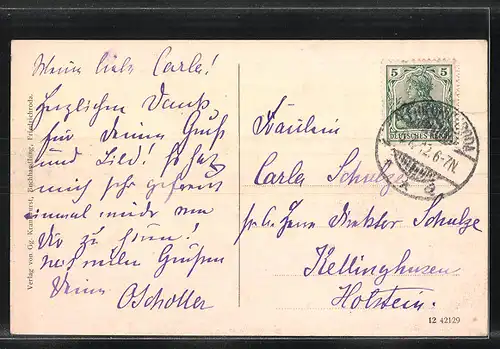 Meine liebe Carla!
Herzlichen Dank
für Deinen Gruß
und Bild! Es hat
mich sehr gefreut
einmal wieder von
Dir zu hören!
Grüßen
Deine OScholler
Verlag von Gg. Buchhandlung, Friedrichroda.
5 5
DEUTSCHES REICH
12.6-7N.
Fräulein
Carla Schulze
Direktor Schulze
Kellinghusen
Holstein.
12 42129